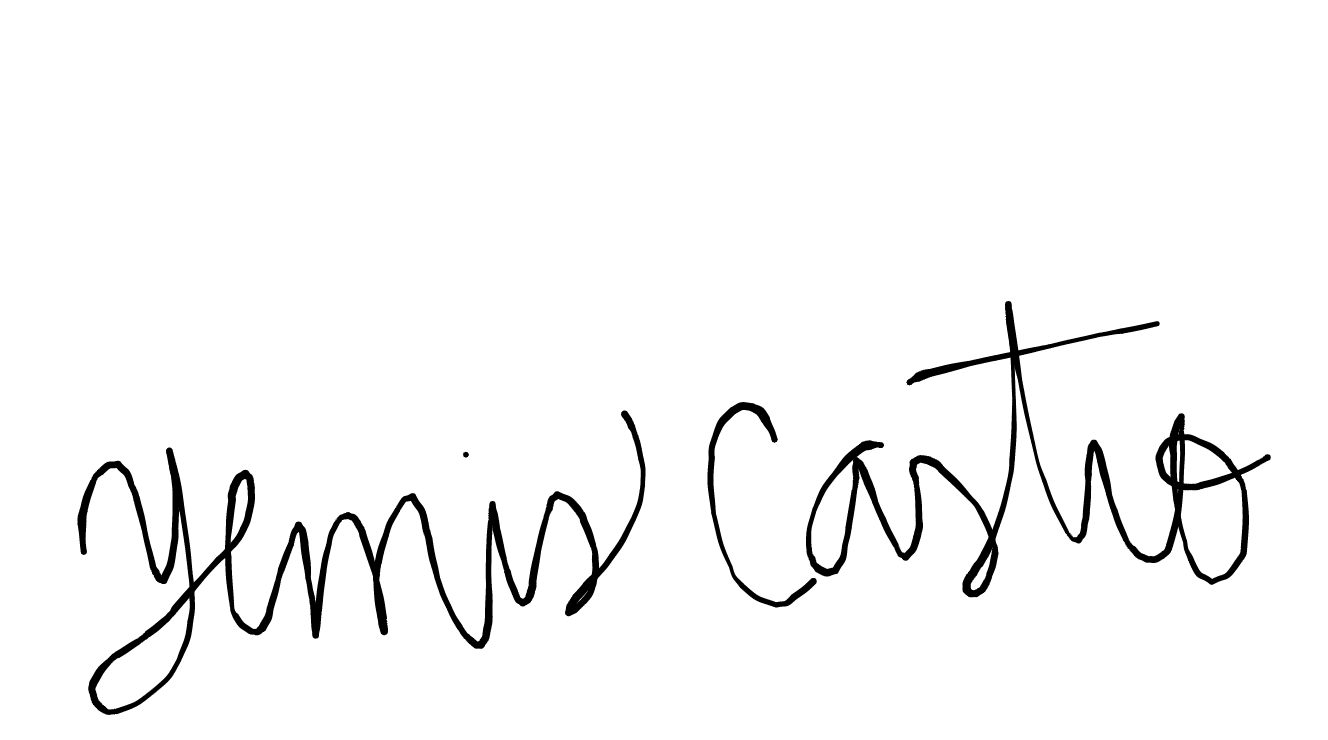 Yemis Castro